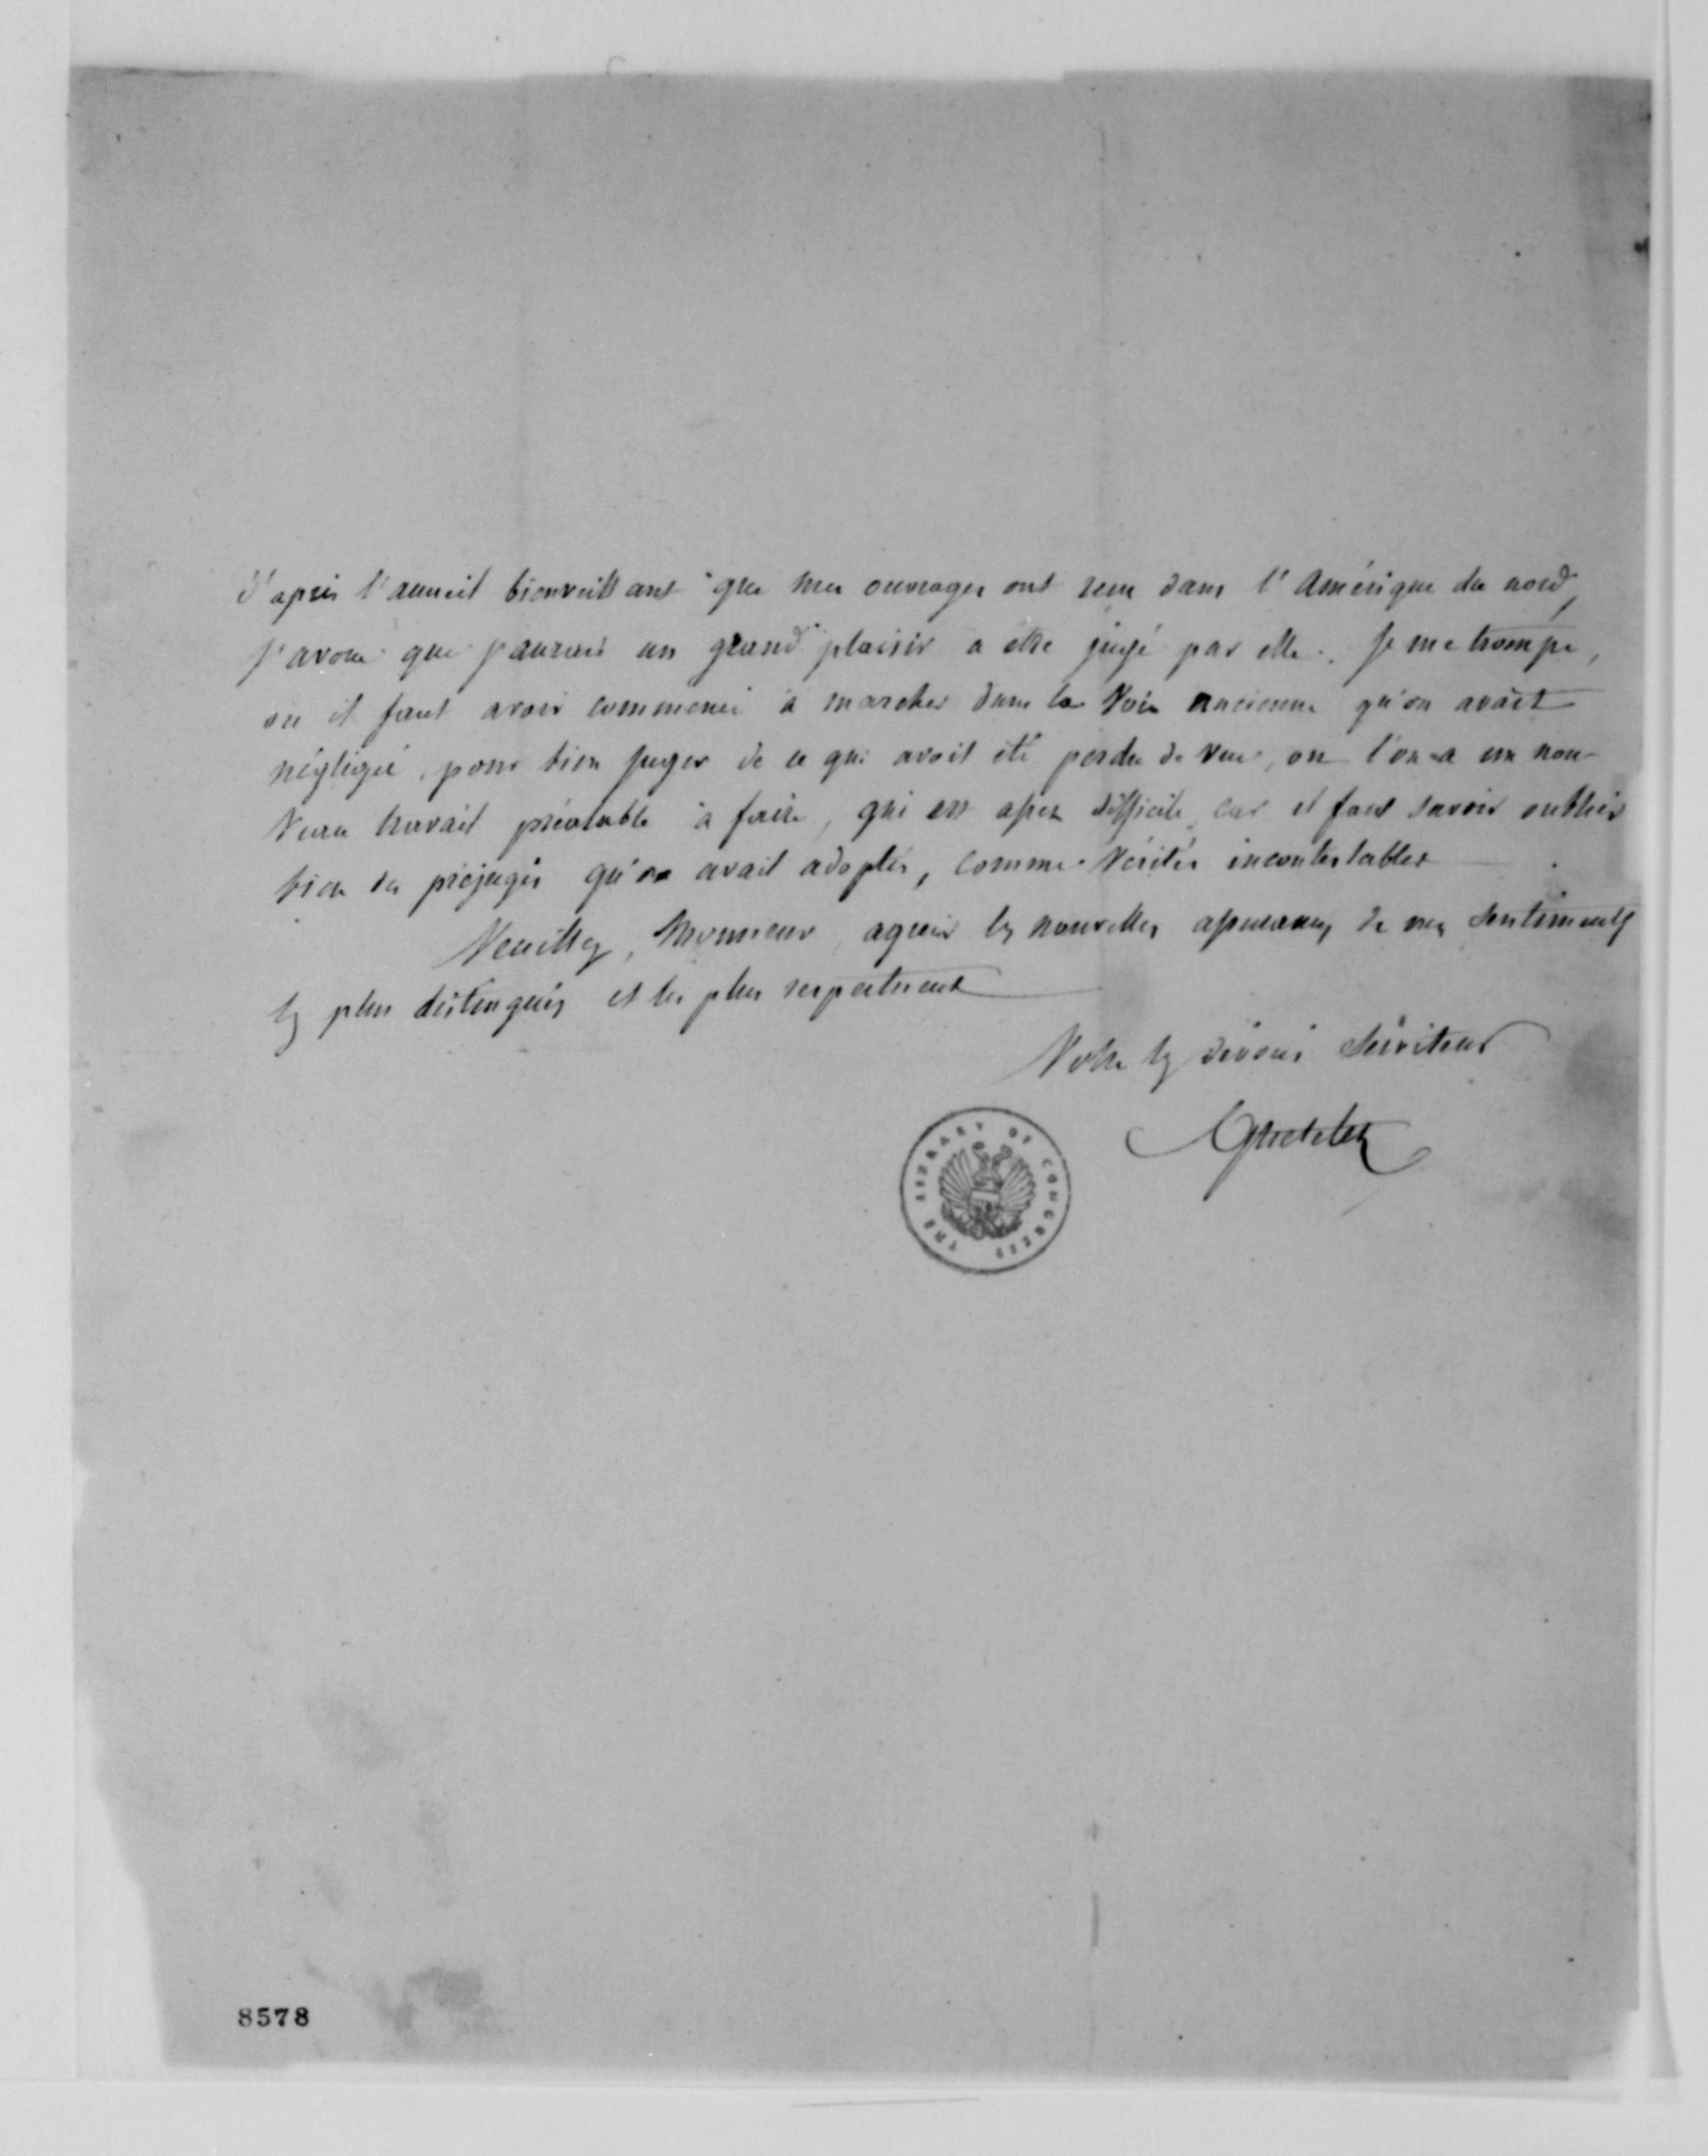 d'après l'accueil bienveillant que mes ouvrages ont reçu dans l'Amérique du nord,
j'avoue que j'aurais un grand plaisir a être jugé par elle. Je me trompe,
ou il faut avoir commencé à marcher dans la voie ancienne qu'on avait
négligée, pour bien juger de ce qui avait été perdu de vue, ou l'on a un nou-
veau travail préalable à faire, qui est assez difficile, car il faut savoir oublier
bien des préjugés qu'on avait adoptés, comme vérités incontestables
Veuillez, Monsieur, agréer les nouvelles assurances de mes sentiments
les plus distingués et les plus respectueux
Votre dévoué Serviteur
Quetelet
THE LIBRARY OF CONGRESS
8578